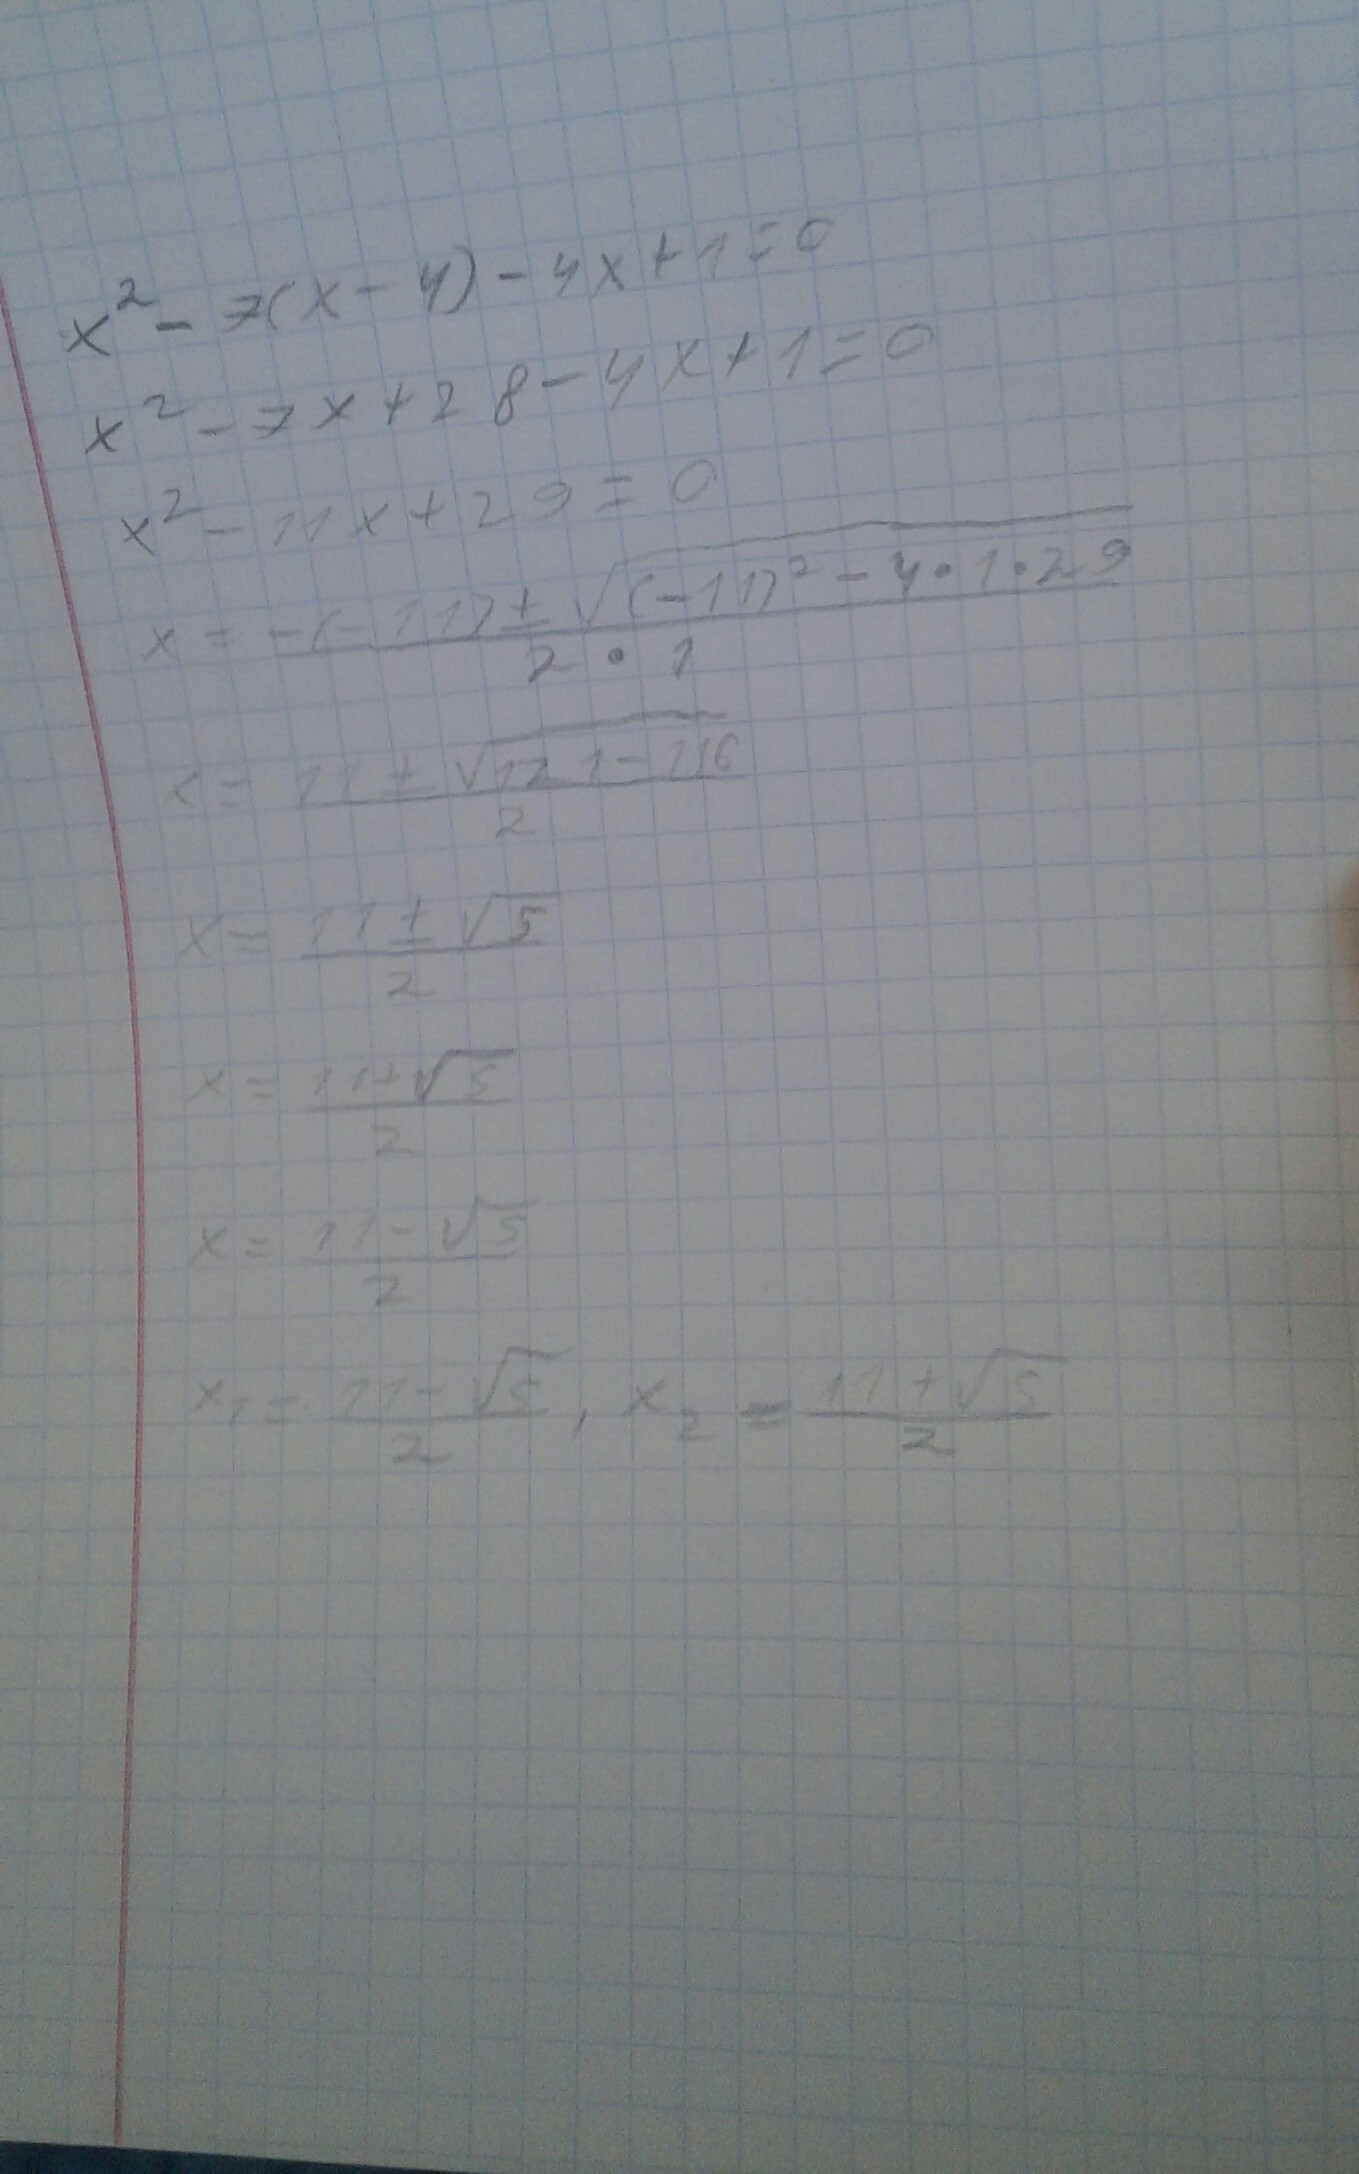 x² - 7(x - 4) - 4x + 1 = 0
x² - 7x + 28 - 4x + 1 = 0
x² - 11x + 29 = 0
x = (-(-11) ± √((-11)² - 4 • 1 • 29)) / (2 • 1)
x = (11 ± √(121 - 116)) / 2
x = (11 ± √5) / 2
x = (11 + √5) / 2
x = (11 - √5) / 2
x₁ = (11 - √5) / 2 , x₂ = (11 + √5) / 2